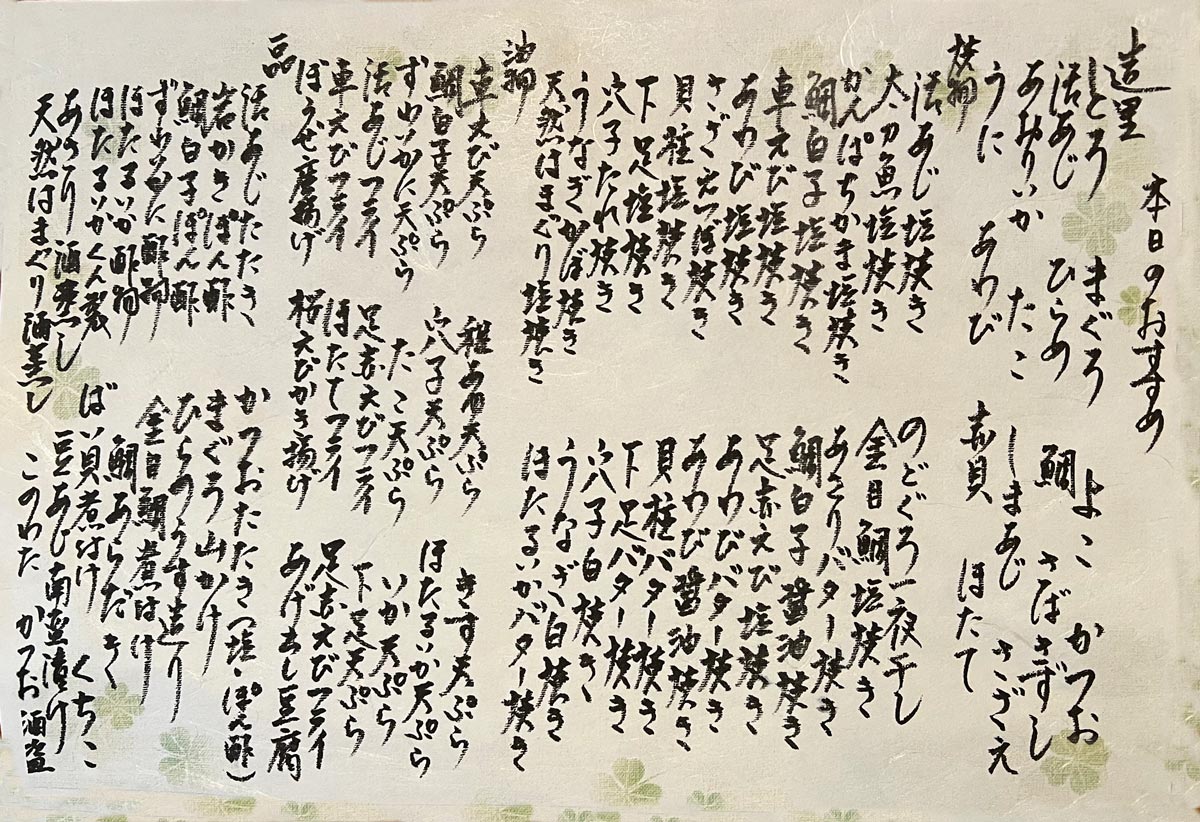 本日のおすすめ
造里
しとろ まぐろ よこ かつお
活あじ ひらめ 鯛 さばきずし
あおりいか たこ しまあじ さざえ
うに あわび 赤貝 ほたて
焼物
活あじ塩焼き のどぐろ一夜干し
太刀魚塩焼き 金目鯛塩焼き
かんぱちかま塩焼き あさりバター焼き
鯛白子塩焼き 鯛白子醤油焼き
車えび塩焼き 足赤えび塩焼き
あわび塩焼き あわびバター焼き
さざえつぼ焼き あわび醤油焼き
貝柱塩焼き 貝柱バター焼き
下足塩焼き 下足バター焼き
穴子たれ焼き 穴子白焼き
うなぎかば焼き うなぎ白焼き
天然はまぐり塩焼き ほたるいかバター焼き
油物
車えび天ぷら 稚あゆ天ぷら きす天ぷら
鯛白子天ぷら 穴子天ぷら ほたるいか天ぷら
ずわいかに天ぷら たこ天ぷら いか天ぷら
活あじフライ 足赤えびフライ 下足天ぷら
車えびフライ ほたてフライ 足赤えびフライ
ぼうぜ唐揚げ 桜えびかき揚げ あげ出し豆腐
一品
活あじたたき かつおたたき(塩・ぽん酢)
岩かきぽん酢 まぐろ山かけ
鯛白子ぽん酢 ひらめうす造り
ずわいかに酢物 金目鯛煮付け
ほたるいか酢物 鯛あらだき
ほたるいかくん製 ばい貝煮付け くちこ
あさり酒蒸し 豆あじ南蛮漬け
天然はまぐり酒蒸し このわた かつお酒盗